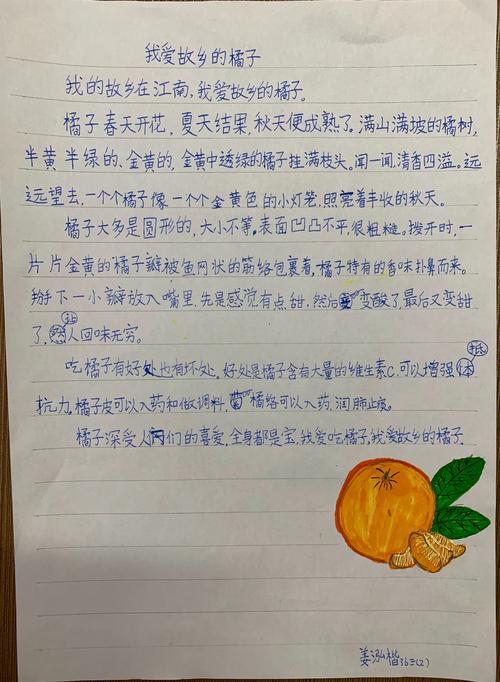 我爱故乡的橘子
我的故乡在江南,我爱故乡的橘子。
橘子春天开花,夏天结果,秋天便成熟了。满山满坡的橘树,
半黄半绿的、金黄的,金黄中透绿的橘子挂满枝头。闻一闻,清香四溢。远
远望去,一个个橘子像一个个金黄色的小灯笼,照亮着丰收的秋天。
橘子大多是圆形的,大小不等。表面凹凸不平很粗糙。拨开时,一
片片金黄的橘子瓣被鱼网状的筋络包裹着,橘子特有的香味扑鼻而来。
掰下一小瓣放入嘴里,先是感觉有点甜,然后变酸了,最后又变甜
了,让人回味无穷。
吃橘子有好处也有坏处。好处是橘子含有大量的维生素C,可以增强抵
抗力,橘子皮可以入药和做调料,橘络可以入药,润肺止痰。
橘子深受人们的喜爱,全身都是宝,我爱吃橘子,我爱故乡的橘子.
姜泓楷